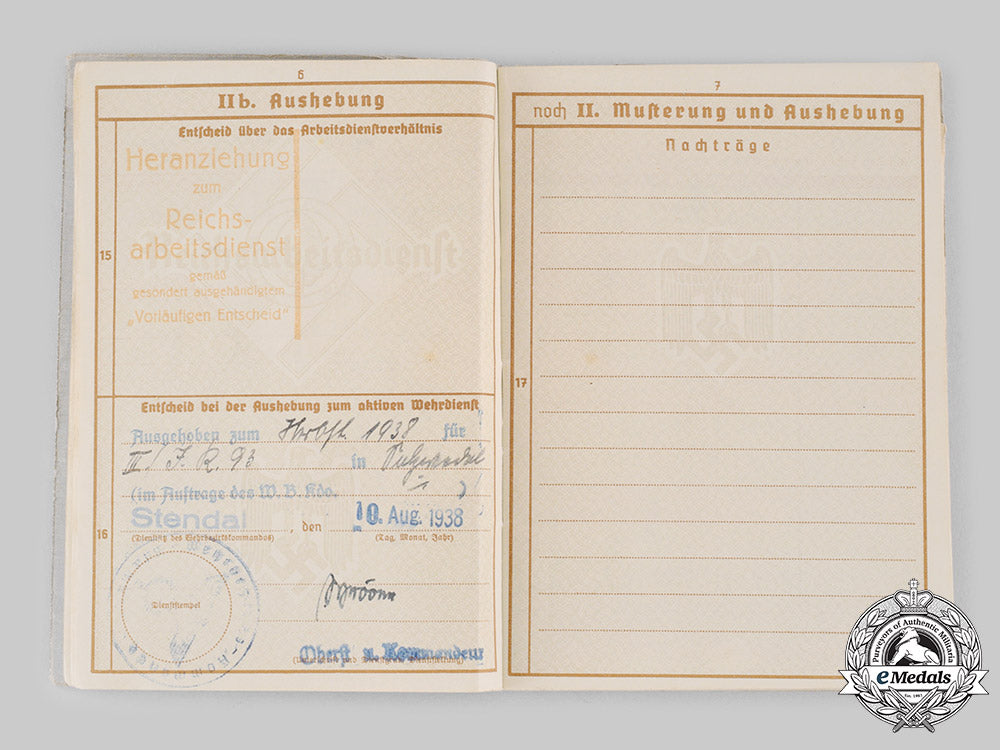 6
IIb. Aushebung
Entscheid über das Arbeitsdienstverhältnis
15
Heranziehung
zum
Reichs-
arbeitsdienst
gemäß
gesondert ausgehändigtem
„Vorläufigen Entscheid"
Reichsarbeitsdienst
Entscheid bei der Aushebung zum aktiven Wehrdienst
16
Ausgehoben zum Herbst 1938 für
III./ J. R. 93 in Salzwedel
(im Auftrage des W. B. Kdo. )
Stendal, den 10. Aug. 1938
(Dienstsitz des Wehrbezirkskommandos) (Tag, Monat, Jahr)
Dienststempel
Oberst u. Kommandeur
7
noch II. Musterung und Aushebung
Nachträge
17
Purveyors of Authentic Militaria
eMedals